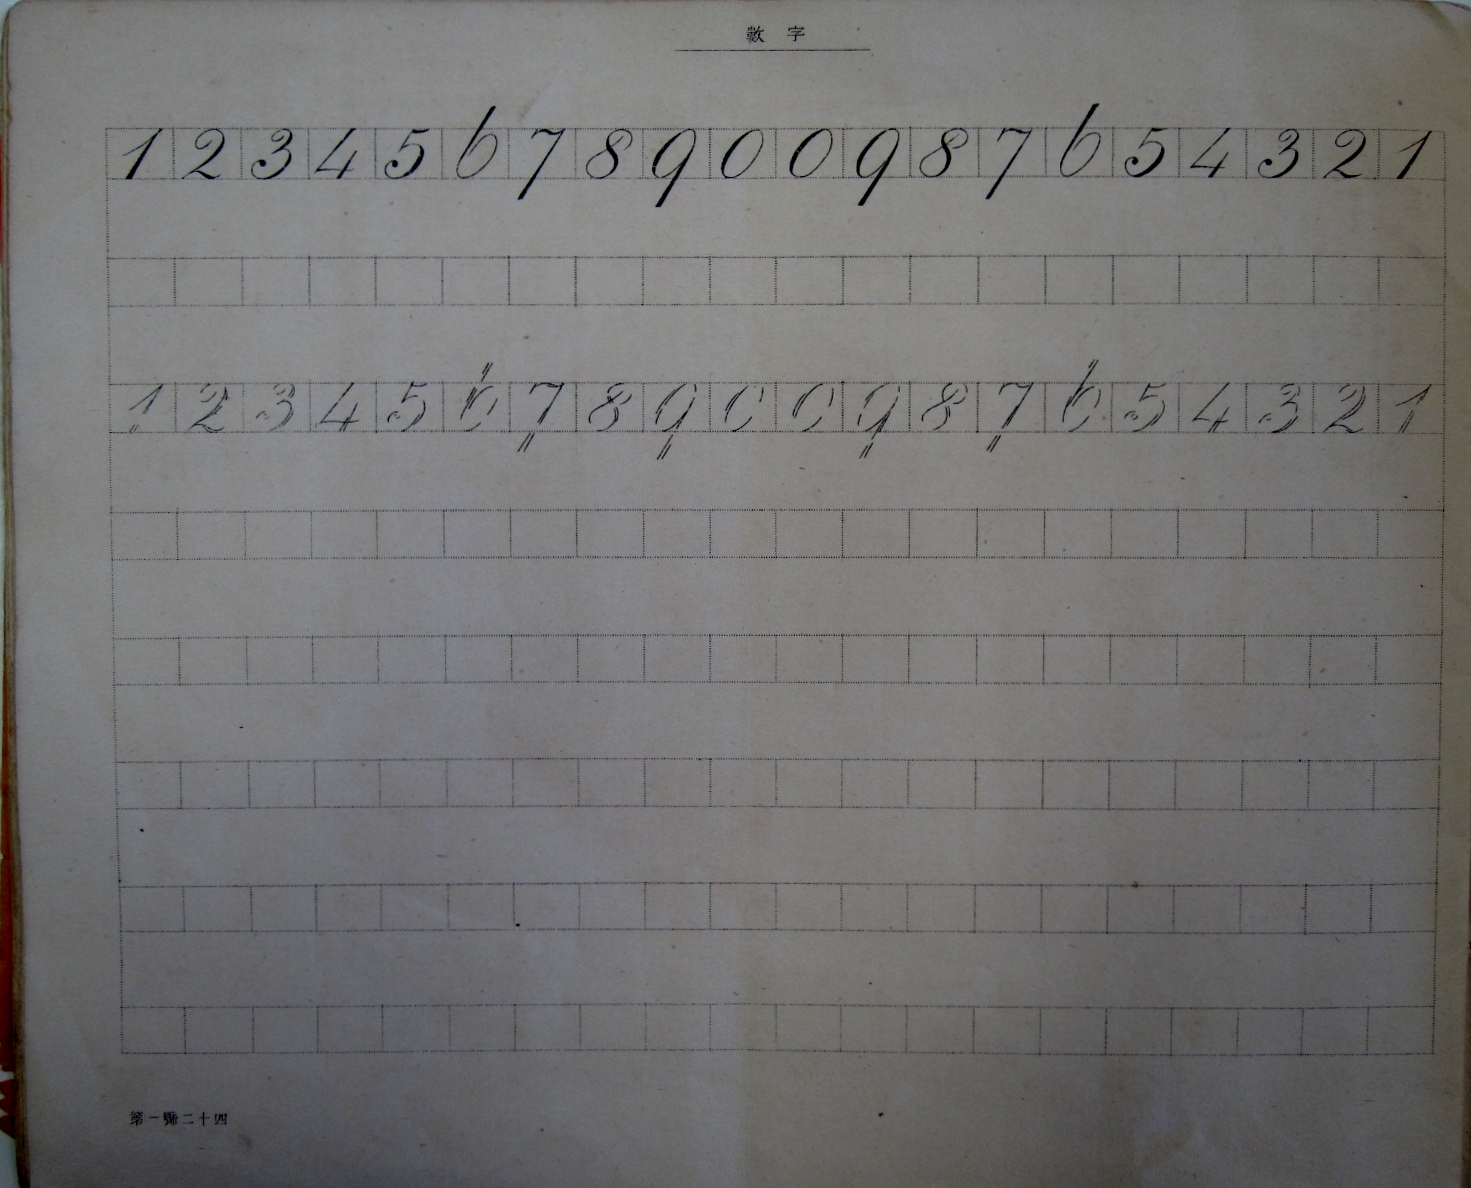 數字
1 2 3 4 5 6 7 8 9 0 0 9 8 7 6 5 4 3 2 1
1 2 3 4 5 6 7 8 9 0 0 9 8 7 6 5 4 3 2 1
第一號二十四